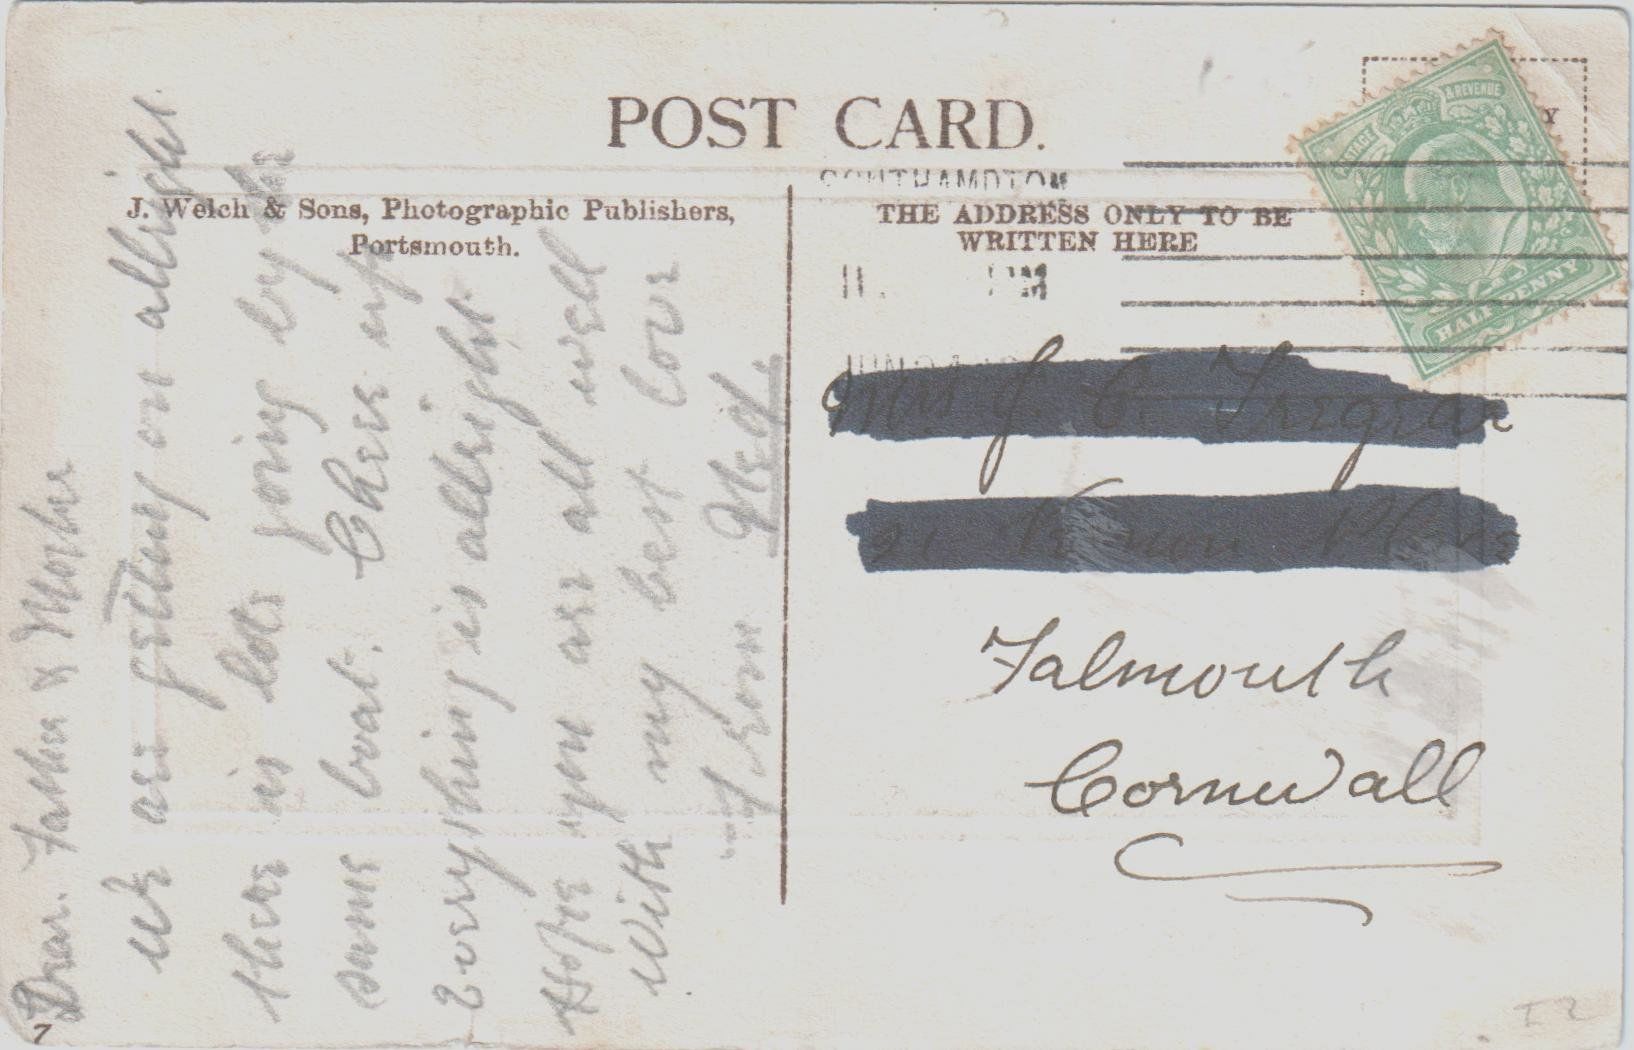 POST CARD.
J. Welch & Sons, Photographic Publishers,
Portsmouth.
THE ADDRESS ONLY TO BE
WRITTEN HERE
SOUTHAMPTON
11. PM
JUN 24
POSTAGE & REVENUE
HALF PENNY
Y
Mrs J. C.
21
Falmouth
Cornwall
Dear. Father & Mother
we are getting on allright
there is lots going by the
same boat. Cheer up
Everything is allright.
Hope you are all well
With my best love
From Ned.
7